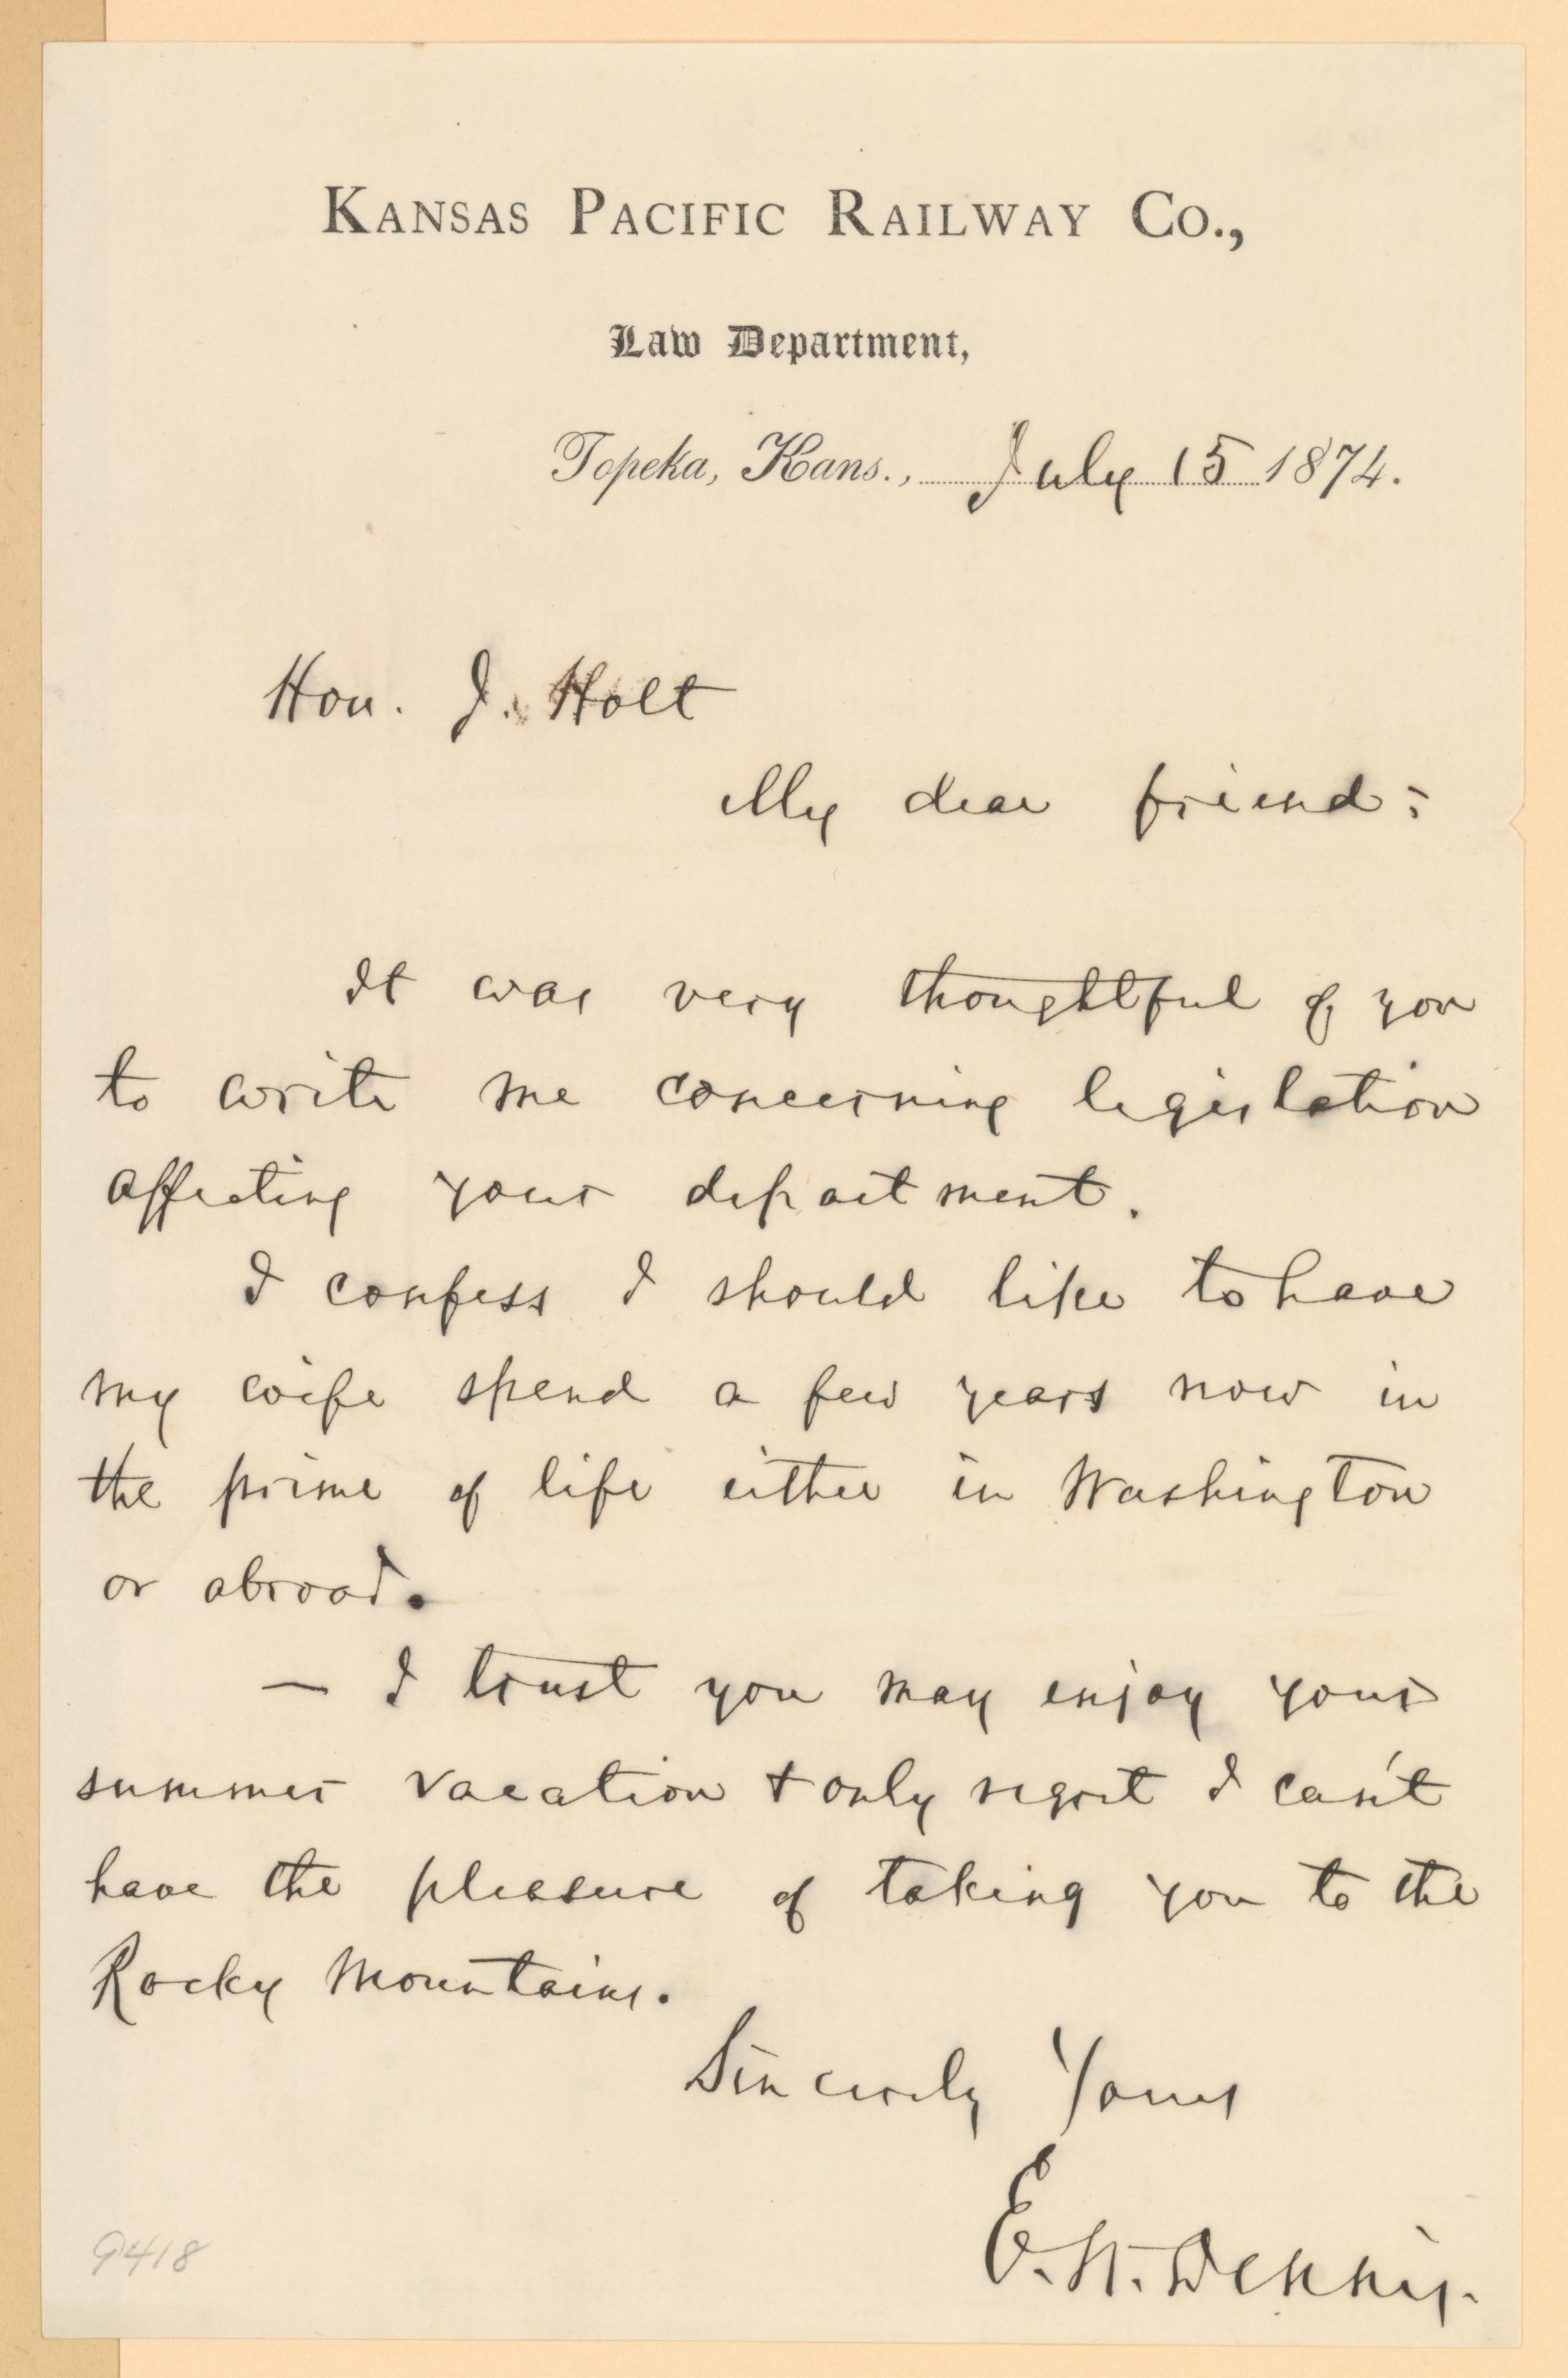 KANSAS PACIFIC RAILWAY CO.,
Law Department,
Topeka, Kans., July 15 1874.
Hon. J. Holt
My dear friend:
It was very thoughtful of you
to write me concerning legislation
affecting your department.
I confess I should like to have
my wife spend a few years now in
the prime of life either in Washington
or abroad.
— I trust you may enjoy your
summer vacation + only regret I can't
have the pleasure of taking you to the
Rocky Mountains.
Sincerely Yours
E. W. Dennis.
9418